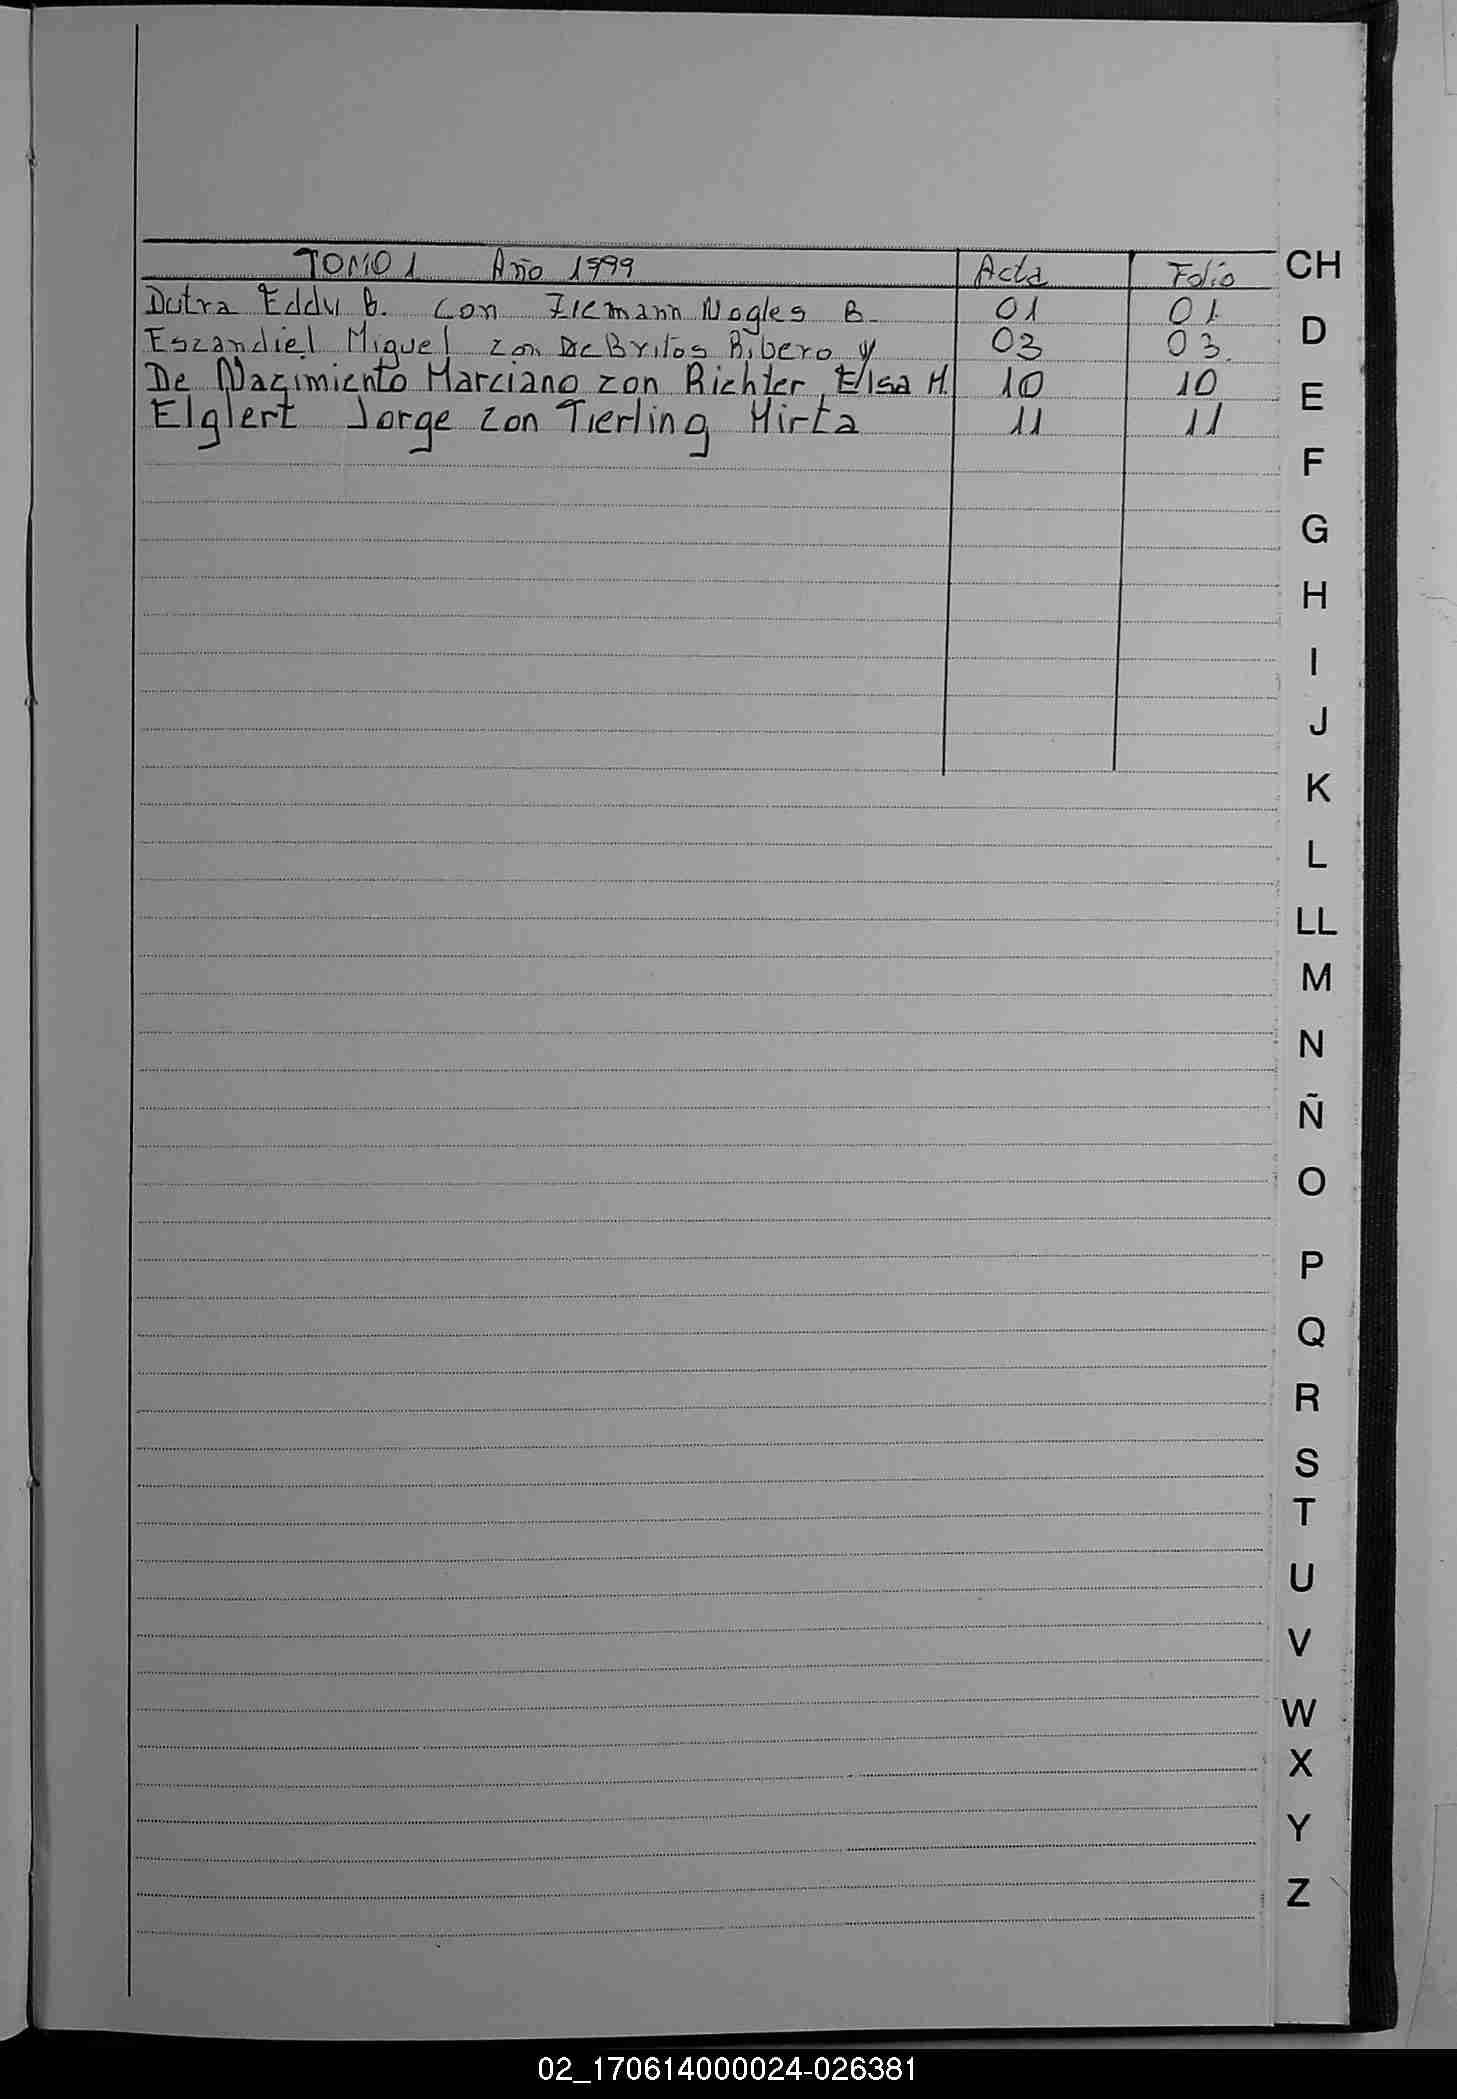 TOMO 1 Año 1999 Acta Folio
Dutra Eddy B. con Ziemann Nogles B. 01 01
Escandiel Miguel con De Britos Ribero y 03 03
De Nacimiento Marciano con Richter Elsa M. 10 10
Elglert Jorge con Tierling Mirta 11 11
CH
D
E
F
G
H
I
J
K
L
LL
M
N
Ñ
O
P
Q
R
S
T
U
V
W
X
Y
Z
02_170614000024-026381